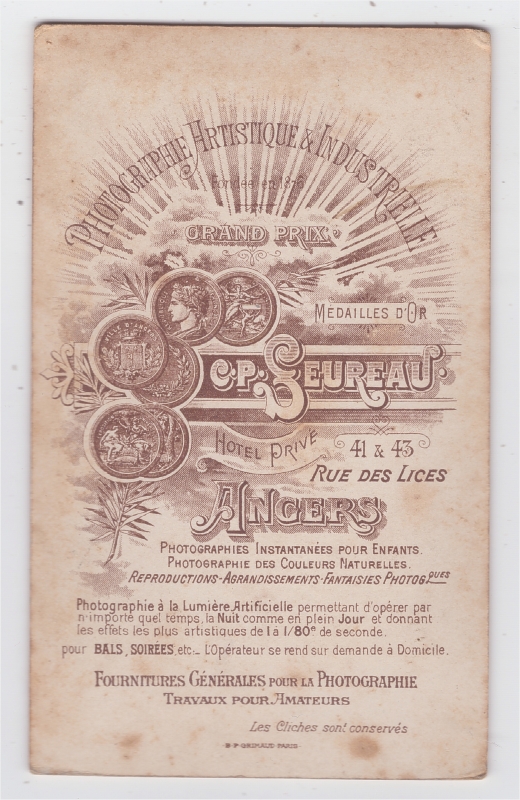 PHOTOGRAPHIE ARTISTIQUE & INDUSTRIELLE
Fondée en 1876
GRAND PRIX
MÉDAILLES D'OR
C.P. SEUREAU
HOTEL PRIVÉ
41 & 43
RUE DES LICES
ANGERS
PHOTOGRAPHIES INSTANTANÉES POUR ENFANTS.
PHOTOGRAPHIE DES COULEURS NATURELLES.
REPRODUCTIONS-AGRANDISSEMENTS-FANTAISIES PHOTOGques
Photographie à la Lumière Artificielle permettant d'opérer par
n'importe quel temps, la Nuit comme en plein Jour et donnant
les effets les plus artistiques de 1 à 1/80e de seconde.
pour BALS, SOIRÉES, etc.- L'Opérateur se rend sur demande à Domicile.
FOURNITURES GÉNÉRALES POUR LA PHOTOGRAPHIE
TRAVAUX POUR AMATEURS
Les Cliches sont conservés
B-P GRIMAUD PARIS